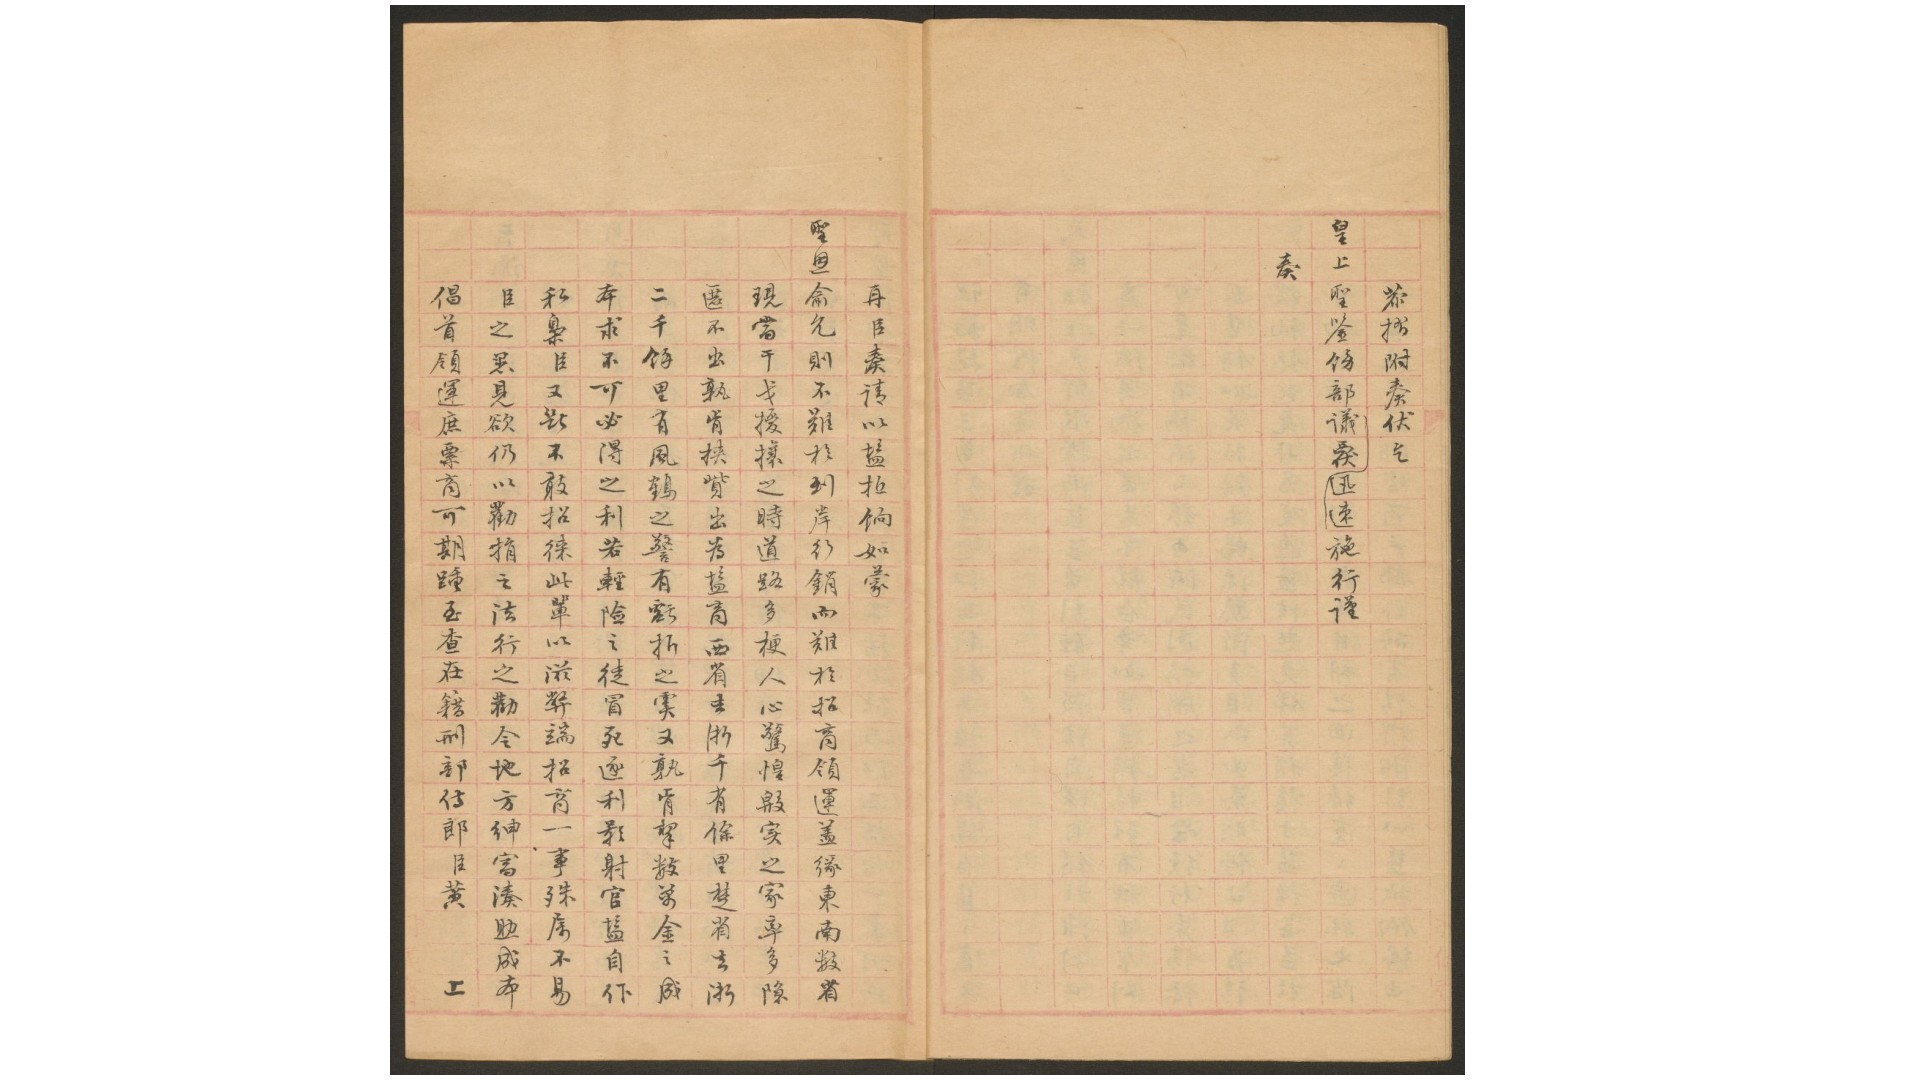 恭摺附奏伏乞
皇上聖鑒飭部議覆迅速施行謹
奏
再臣奏請以鹽抵餉如蒙
聖恩俞允則不難於到岸行銷而難於招商領運蓋緣東南數省
現當干戈擾攘之時道路多梗人心驚惶殷实之家率多隐
匿不出孰肯挾貲出為鹽商西省去浙千有餘里楚省去浙
二千餘里有風鶴之警有虧折之虞又孰肯挈數萬金之成
本求不可必得之利若輕險之徒冒死逐利影射官鹽自作
私梟臣又斷不敢招徠此輩以滋弊端招商一事殊属不易
臣之愚見欲仍以勸捐之法行之勸令地方紳富湊助成本
倡首領運庶票商可期踵至查在籍刑部侍郎臣黃　　上